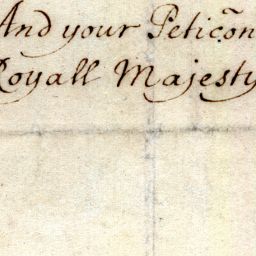 And your Peticõn
Royall Majesty